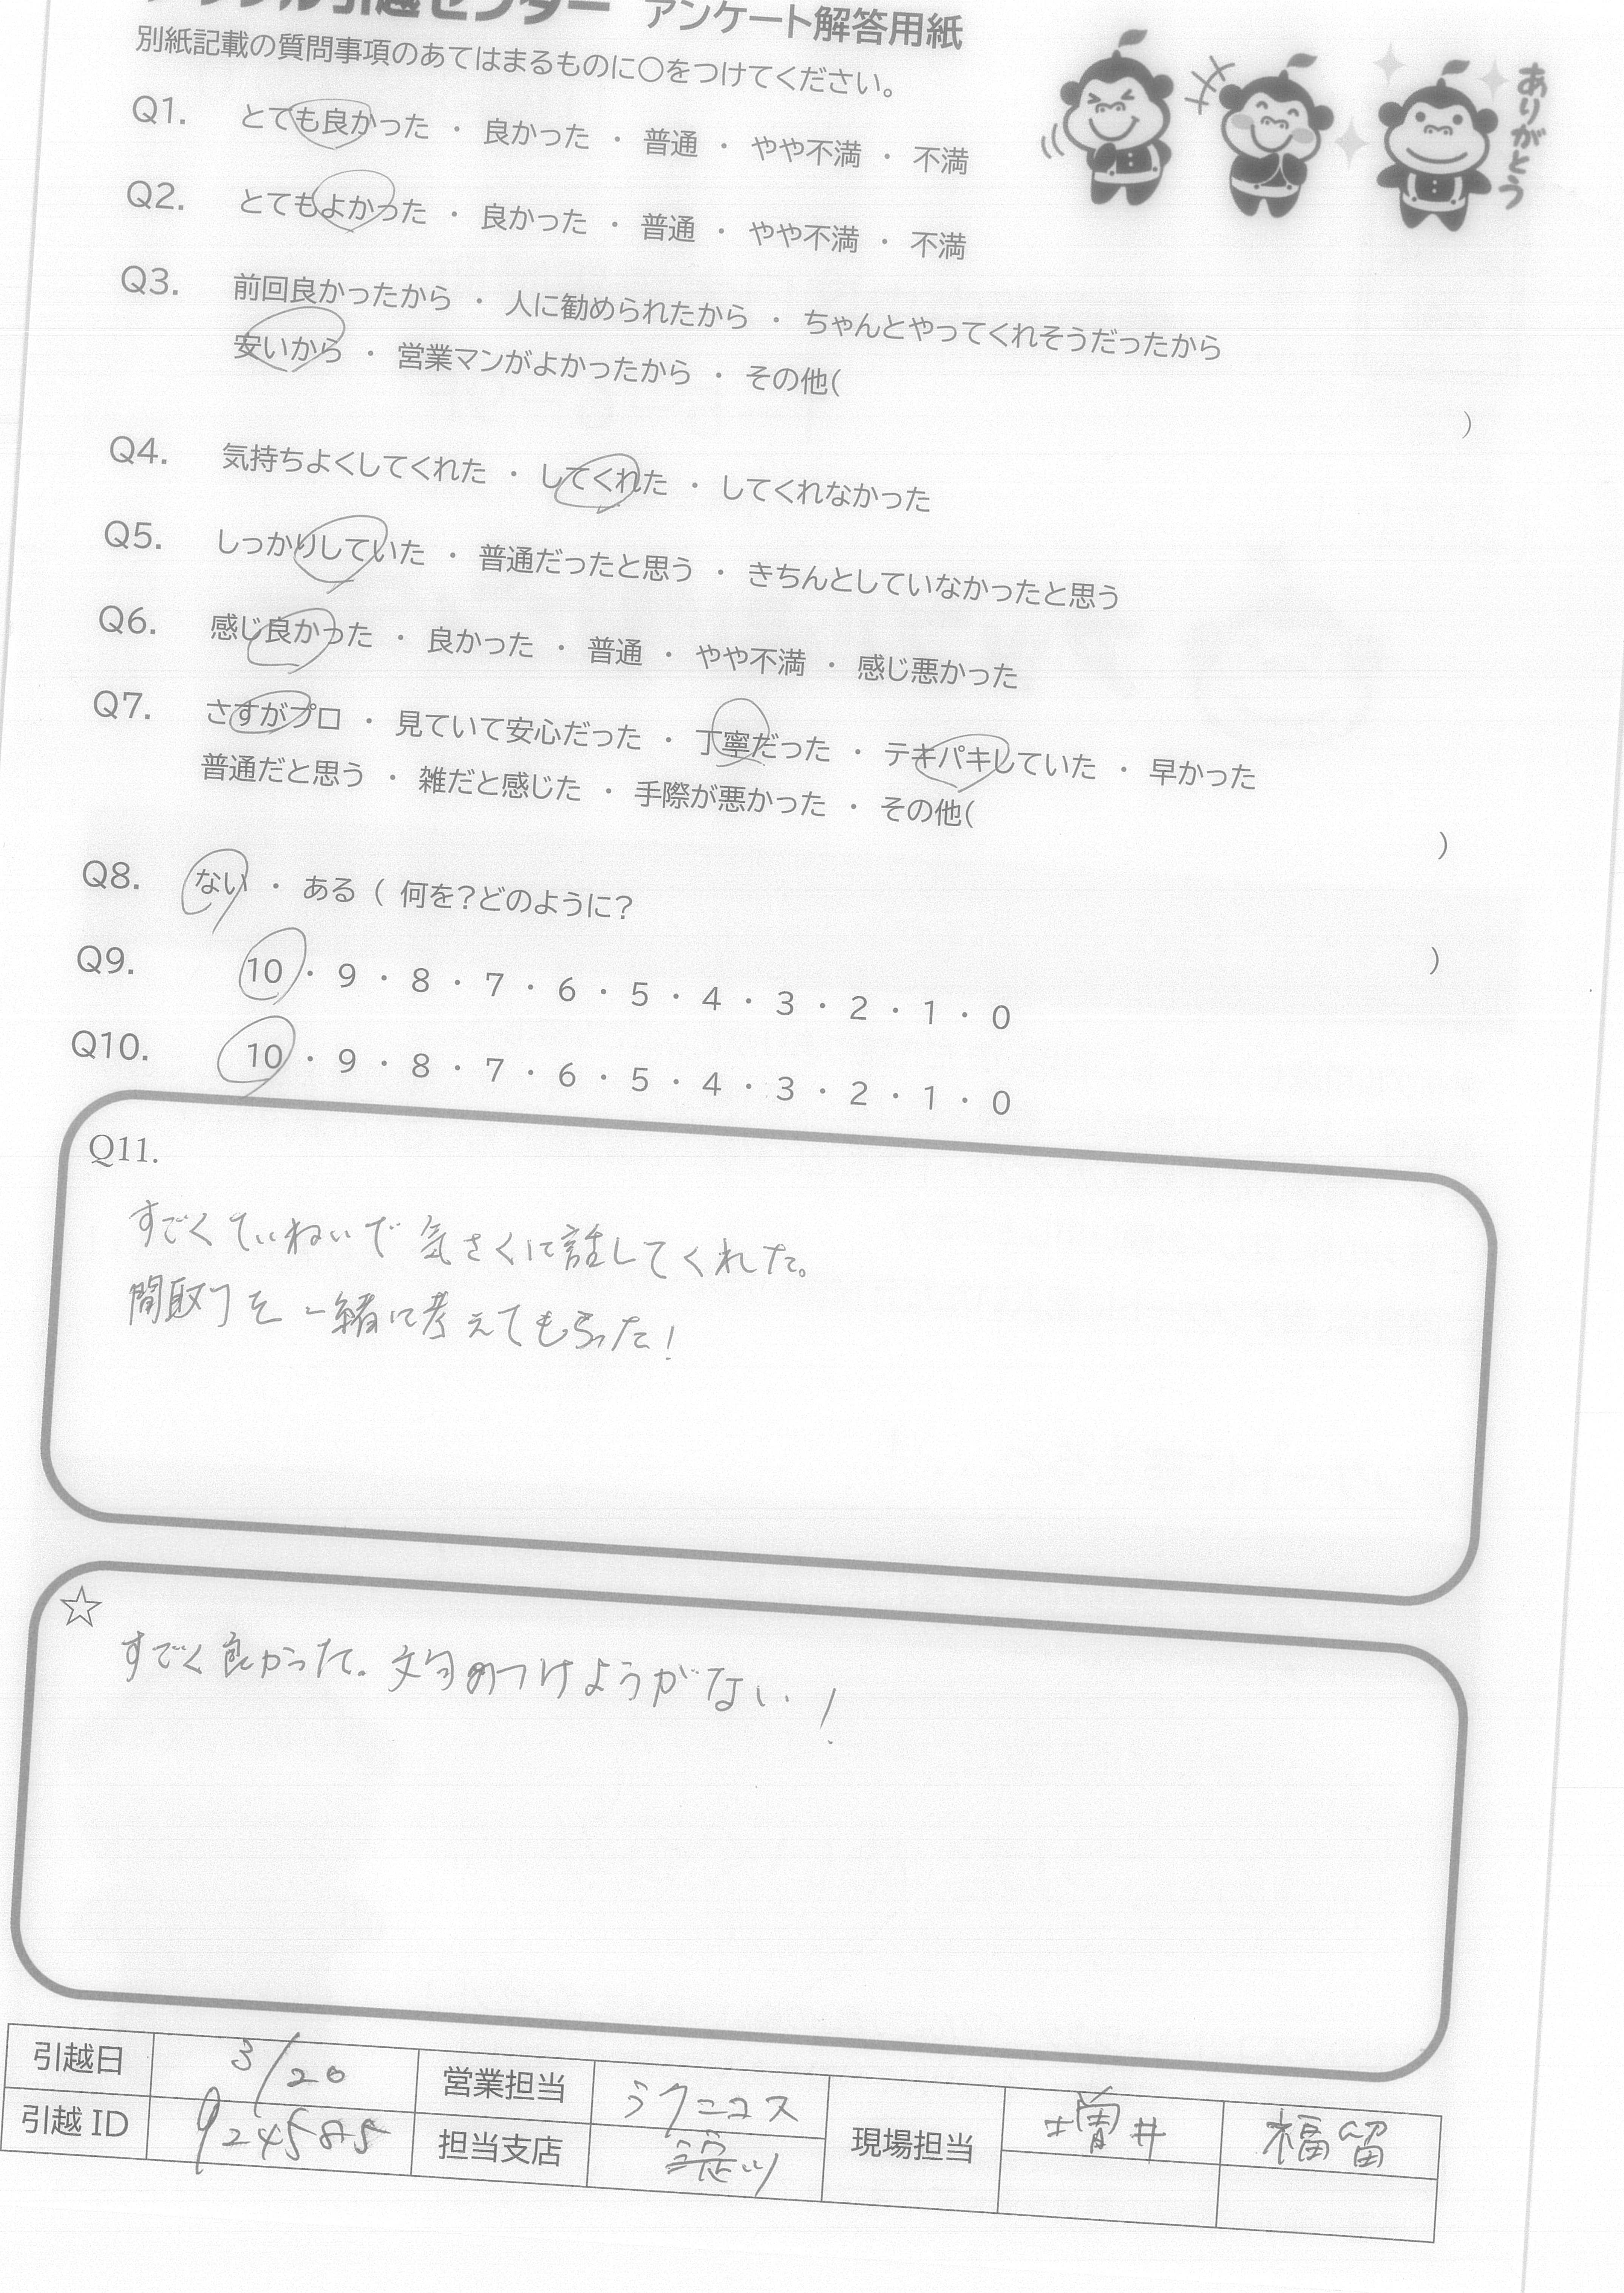 引越センター アンケート解答用紙
別紙記載の質問事項のあてはまるものに○をつけてください。
ありがとう
Q1. とても良かった ・ 良かった ・ 普通 ・ やや不満 ・ 不満
Q2. とてもよかった ・ 良かった ・ 普通 ・ やや不満 ・ 不満
Q3. 前回良かったから ・ 人に勧められたから ・ ちゃんとやってくれそうだったから
安いから ・ 営業マンがよかったから ・ その他( )
Q4. 気持ちよくしてくれた ・ してくれた ・ してくれなかった
Q5. しっかりしていた ・ 普通だったと思う ・ きちんとしていなかったと思う
Q6. 感じ良かった ・ 良かった ・ 普通 ・ やや不満 ・ 感じ悪かった
Q7. さすがプロ ・ 見ていて安心だった ・ 丁寧だった ・ テキパキしていた ・ 早かった
普通だと思う ・ 雑だと感じた ・ 手際が悪かった ・ その他( )
Q8. ない ・ ある ( 何を?どのように? )
Q9. 10 ・ 9 ・ 8 ・ 7 ・ 6 ・ 5 ・ 4 ・ 3 ・ 2 ・ 1 ・ 0
Q10. 10 ・ 9 ・ 8 ・ 7 ・ 6 ・ 5 ・ 4 ・ 3 ・ 2 ・ 1 ・ 0
Q11.
すごくていねいで気さくに話してくれた。
間取りを一緒に考えてもらった!
☆
すごく良かった。文句のつけようがない!
引越日 3/20 営業担当 現場担当 増井 福留
引越ID 924585 担当支店